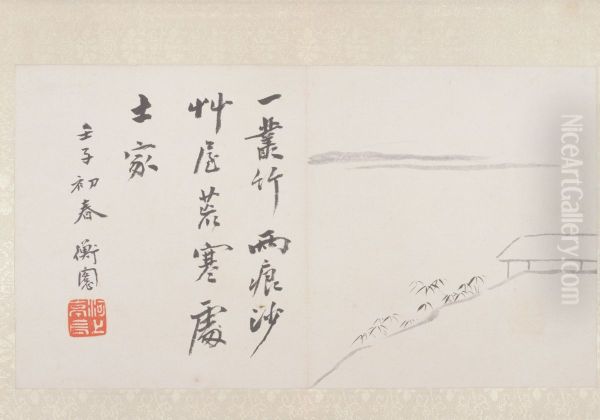 一叢竹兩痕沙
艸屋荒寒處
士家
壬子初春 衡
NiceArtGallery.com